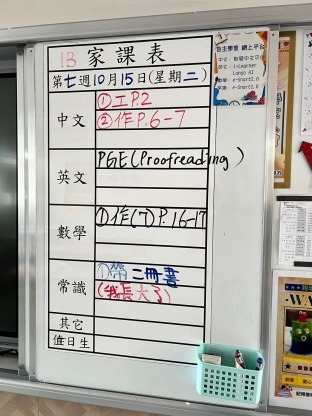 1B 家課表
第七週10月15日(星期二)
中文
①工P.2
②作P.6-7
英文
PGE(Proofreading)
數學
①作(7)P.16-17
常識
①帶二冊書
(我長大了)
其它
值日生
自主學習 網上平台
i-Learner